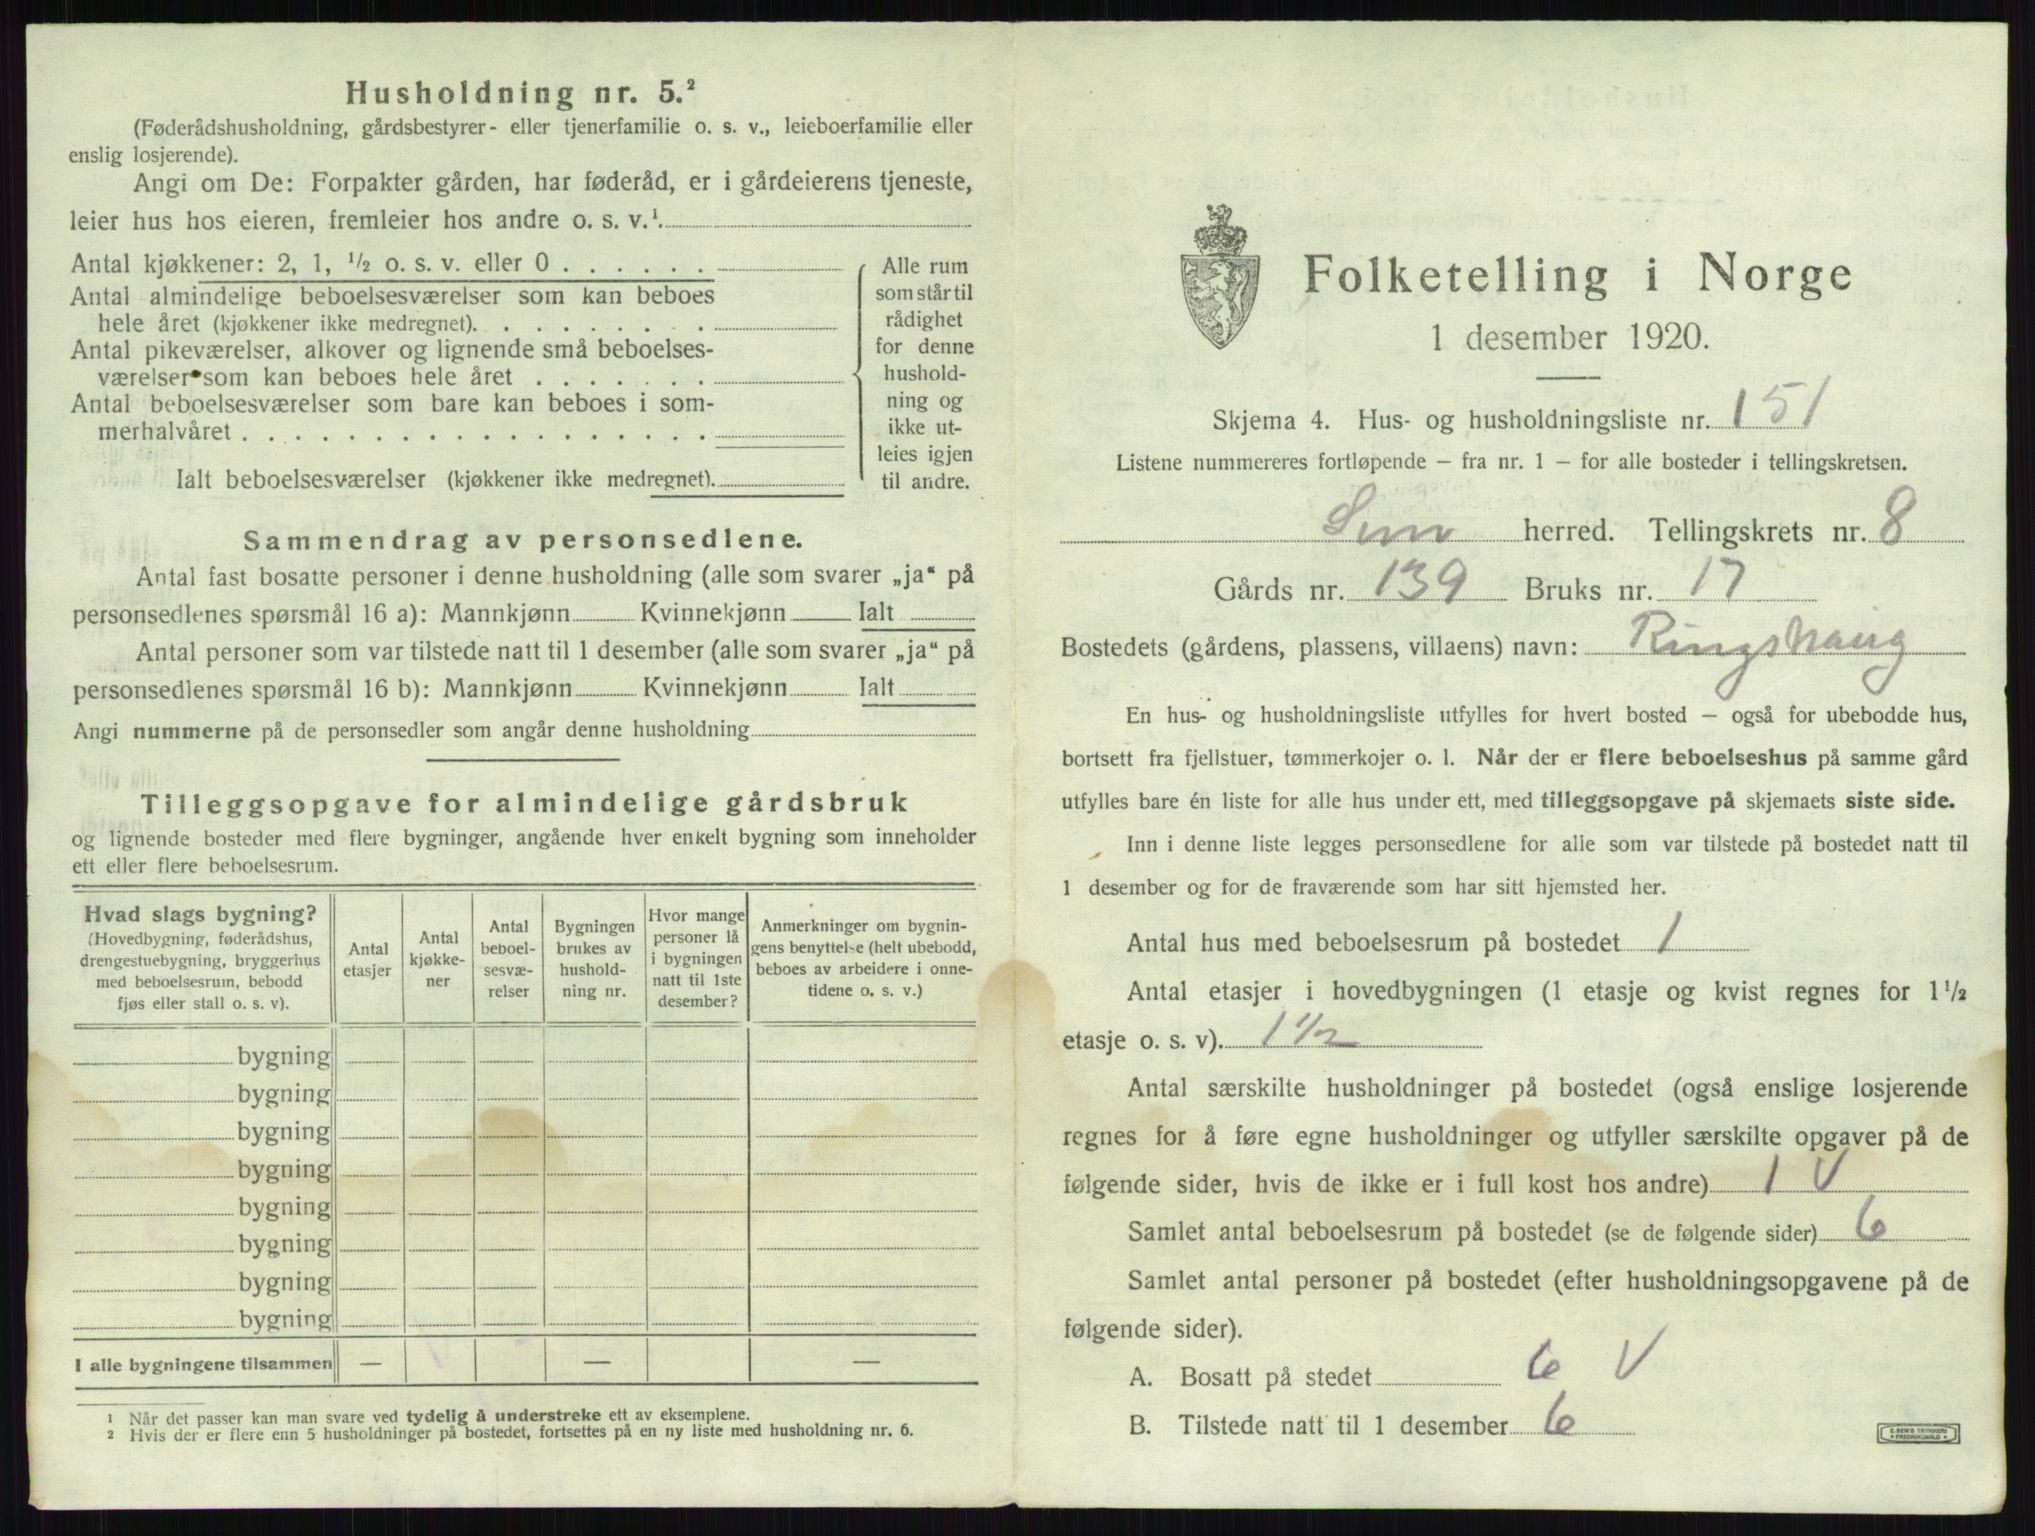 Husholdning nr. 5.²
(Føderådshusholdning, gårdsbestyrer- eller tjenerfamilie o. s. v., leieboerfamilie eller
enslig losjerende).
Angi om De: Forpakter gården, har føderåd, er i gårdeierens tjeneste,
leier hus hos eieren, fremleier hos andre o. s. v.¹.
Antal kjøkkener: 2, 1, ½ o. s. v. eller 0 . . . . . .
Antal almindelige beboelsesværelser som kan beboes
hele året (kjøkkener ikke medregnet). . . . . . . . .
Antal pikeværelser, alkover og lignende små beboelses-
værelser som kan beboes hele året . . . . . . .
Antal beboelsesværelser som bare kan beboes i som-
merhalvåret . . . . . . . . . . . . . . . . . .
Ialt beboelsesværelser (kjøkkener ikke medregnet).
Alle rum
som står til
rådighet
for denne
hushold-
ning og
ikke ut-
leies igjen
til andre.
Sammendrag av personsedlene.
Antal fast bosatte personer i denne husholdning (alle som svarer „ja“ på
personsedlenes spørsmål 16 a): Mannkjønn Kvinnekjønn Ialt
Antal personer som var tilstede natt til 1 desember (alle som svarer „ja“ på
personsedlenes spørsmål 16 b): Mannkjønn Kvinnekjønn Ialt
Angi nummerne på de personsedler som angår denne husholdning
Tilleggsopgave for almindelige gårdsbruk
og lignende bosteder med flere bygninger, angående hver enkelt bygning som inneholder
ett eller flere beboelsesrum.
Hvad slags bygning?
(Hovedbygning, føderådshus,
drengestuebygning, bryggerhus
med beboelsesrum, bebodd
fjøs eller stall o. s. v).
Antal
etasjer
Antal
kjøkke-
ner
Antal
beboel-
sesvæ-
relser
Bygningen
brukes av
hushold-
ning nr.
Hvor mange
personer lå
i bygningen
natt til 1ste
desember?
Anmerkninger om bygnin-
gens benyttelse (helt ubebodd,
beboes av arbeidere i onne-
tidene o. s. v.)
bygning
bygning
bygning
bygning
bygning
bygning
bygning
bygning
I alle bygningene tilsammen — — —
1 Når det passer kan man svare ved tydelig å understreke ett av eksemplene.
2 Hvis der er flere enn 5 husholdninger på bostedet, fortsettes på en ny liste med husholdning nr. 6.
Folketelling i Norge
1 desember 1920.
Skjema 4. Hus- og husholdningsliste nr. 151
Listene nummereres fortløpende — fra nr. 1 — for alle bosteder i tellingskretsen.
Sem herred. Tellingskrets nr. 8
Gårds nr. 139 Bruks nr. 17
Bostedets (gårdens, plassens, villaens) navn: Ringshaug
En hus- og husholdningsliste utfylles for hvert bosted — også for ubebodde hus,
bortsett fra fjellstuer, tømmerkojer o. l. Når der er flere beboelseshus på samme gård
utfylles bare én liste for alle hus under ett, med tilleggsopgave på skjemaets siste side.
Inn i denne liste legges personsedlene for alle som var tilstede på bostedet natt til
1 desember og for de fraværende som har sitt hjemsted her.
Antal hus med beboelsesrum på bostedet 1
Antal etasjer i hovedbygningen (1 etasje og kvist regnes for 1½
etasje o. s. v). 1½
Antal særskilte husholdninger på bostedet (også enslige losjerende
regnes for å føre egne husholdninger og utfyller særskilte opgaver på de
følgende sider, hvis de ikke er i full kost hos andre) 1 V
Samlet antal beboelsesrum på bostedet (se de følgende sider) 6
Samlet antal personer på bostedet (efter husholdningsopgavene på de
følgende sider).
A. Bosatt på stedet 6 V
B. Tilstede natt til 1 desember 6
E. SEM'S TRYKKERI
FREDRIKSHALD